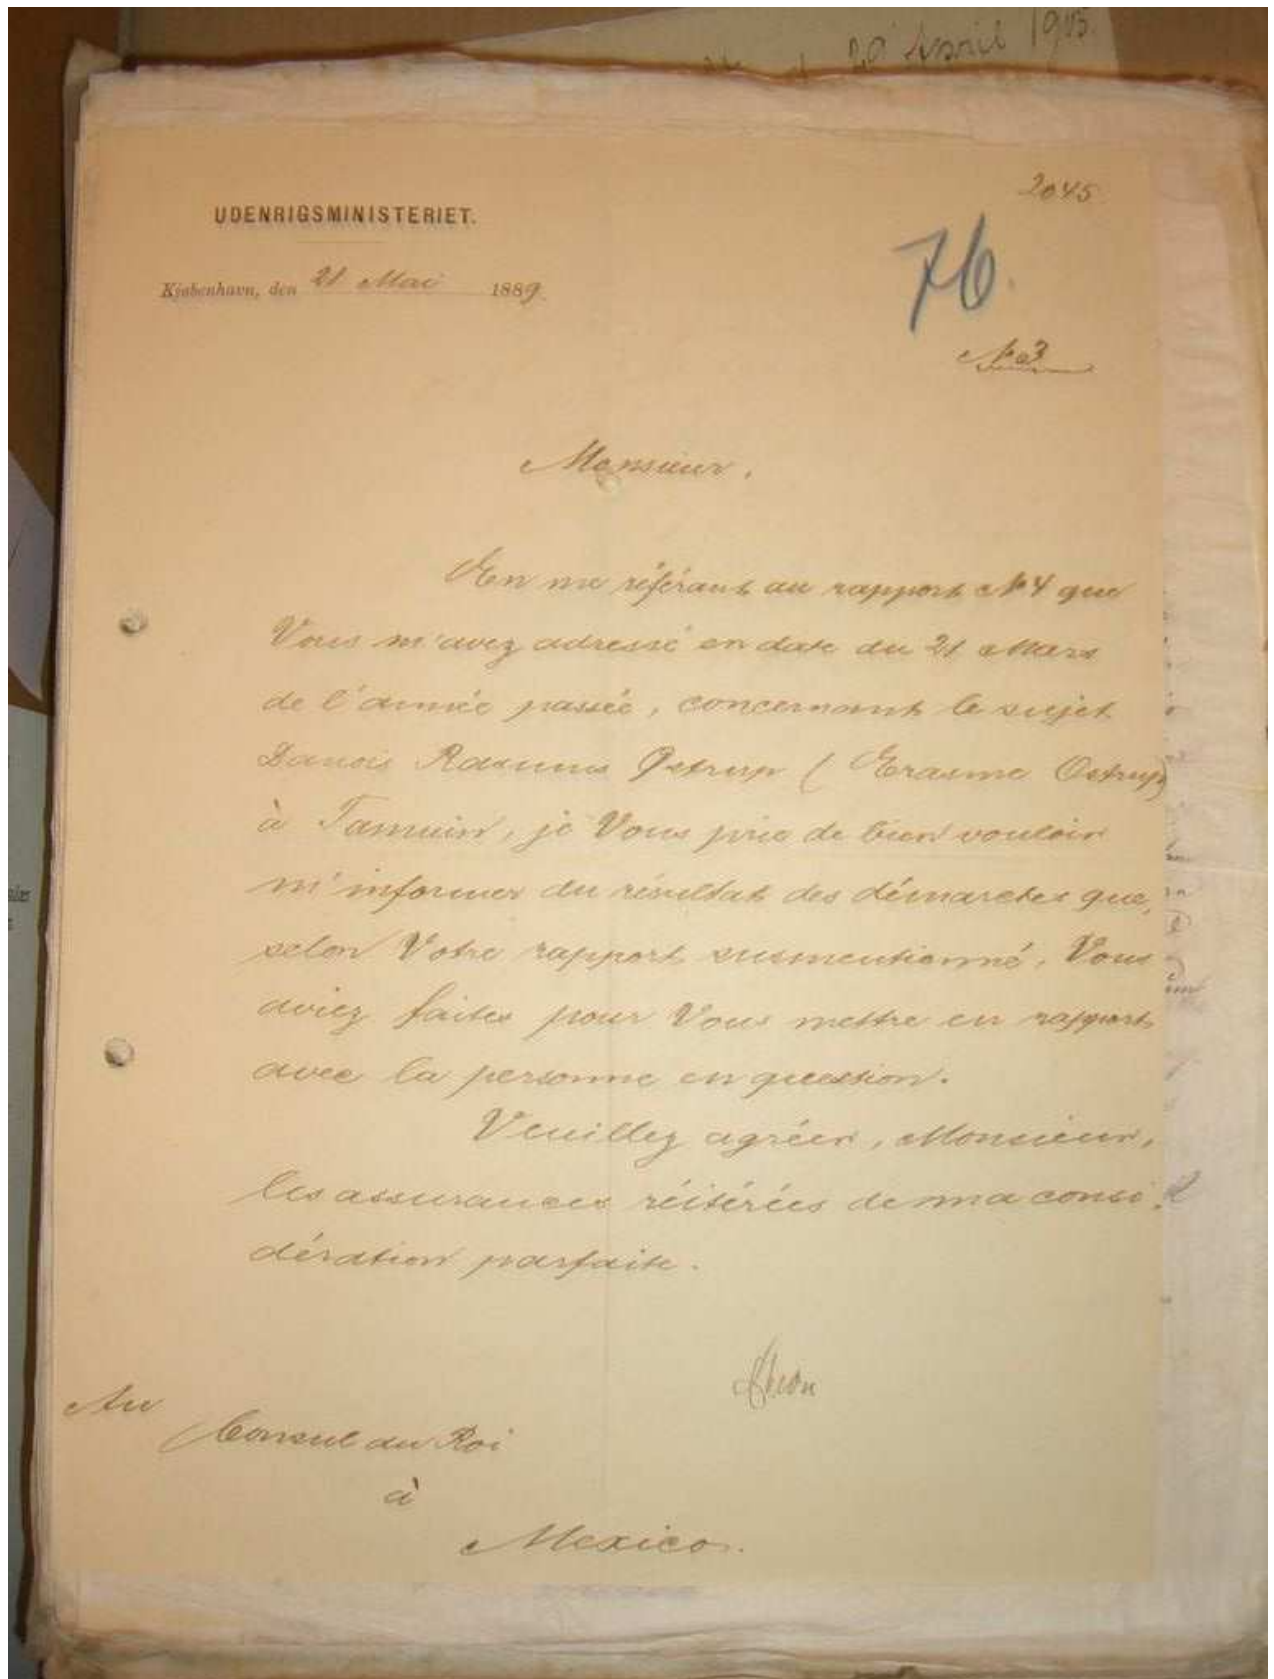 20 Avril 1903.
2045
UDENRIGSMINISTERIET.
76.
Kjøbenhavn, den 21 Mai 1889.
No 3
Monsieur.
En me référant au rapport No 4 que
Vous m'avez adressé en date du 21 Mars
de l'année passée, concernant le sujet
Danois Rasmus Ostrup (Erasme Ostrup)
à Tamuin, je Vous prie de bien vouloir
m'informer du résultat des démarches que,
selon Votre rapport susmentionné, Vous
aviez faites pour Vous mettre en rapport
avec la personne en question.
Veuillez agréer, Monsieur,
les assurances réitérées de ma consi-
dération parfaite.
Au
Consul du Roi
à
Mexico.